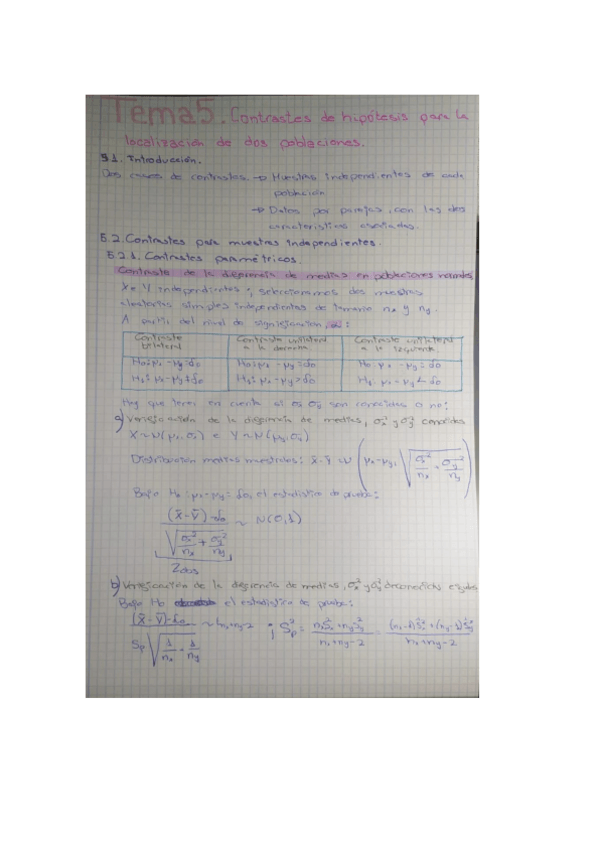 Tema 5. Contrastes de hipótesis para la
localización de dos poblaciones.
5.1. Introducción.
Dos clases de contrastes. → Muestras independientes de cada
población
→ Datos por parejas, con las dos
características asociadas.
5.2. Contrastes para muestras independientes.
5.2.1. Contrastes paramétricos.
Contraste de la diferencia de medias en poblaciones normales
X e Y independientes; seleccionamos dos muestras
aleatorias simples independientes de tamaño nx y ny.
A partir del nivel de significación α:
Contraste bilateral | Contraste unilateral a la derecha | Contraste unilateral a la izquierda
H0: μx - μy = δ0 | H0: μx - μy = δ0 | H0: μx - μy = δ0
H1: μx - μy ≠ δ0 | H1: μx - μy > δ0 | H1: μx - μy < δ0
Hay que tener en cuenta si σx σy son conocidas o no:
a) Verificación de la diferencia de medias, σx² y σy² conocidas
X ~ N(μx, σx) e Y ~ N(μy, σy)
Distribución medias muestrales: x̄ - ȳ ~ N (μx - μy, √(σx²/nx + σy²/ny))
Bajo H0: μx - μy = δ0, el estadístico de prueba:
(X̄ - Ȳ) - δ0 / √(σx²/nx + σy²/ny) ~ N(0,1)
Zobs
b) Verificación de la diferencia de medias, σx² y σy² desconocidas iguales
Bajo H0 el estadístico de prueba:
(X̄ - Ȳ) - δ0 / Sp √(1/nx + 1/ny) ~ tnx+ny-2 ; Sp² = nxSx² + nySy² / nx + ny - 2 = (nx - 1)Ŝx² + (ny - 1)Ŝy² / nx + ny - 2